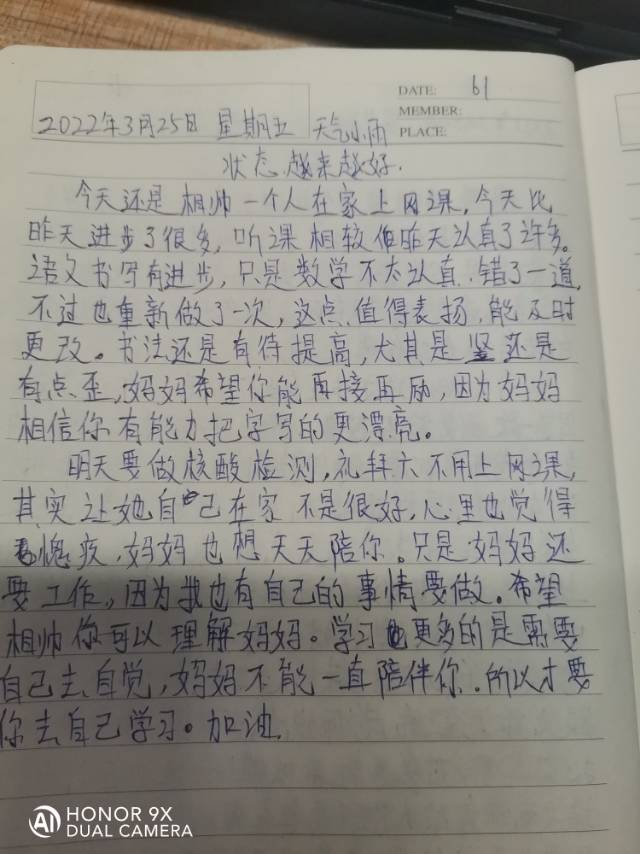 DATE: 61
MEMBER:
PLACE:
2022年3月25日 星期五 天气小雨
状态越来越好.
今天还是相帅一个人在家上网课,今天比
昨天进步了很多,听课相较作昨天认真了许多。
语文书写有进步,只是数学不太认真.错了一道,
不过也重新做了一次,这点值得表扬.能及时
更改。书法还是有待提高,尤其是竖还是
有点歪,妈妈希望你能再接再励,因为妈妈
相信你有能力把字写的更漂亮。
明天要做核酸检测,礼拜六不用上网课,
其实让她自己在家不是很好,心里也觉得
愧疚,妈妈也想天天陪你。只是妈妈还
要工作,因为我也有自己的事情要做。希望
相帅你可以理解妈妈。学习更多的是需要
自己去自觉,妈妈不能一直陪伴你.所以才要
你去自己学习。加油.
HONOR 9X
DUAL CAMERA